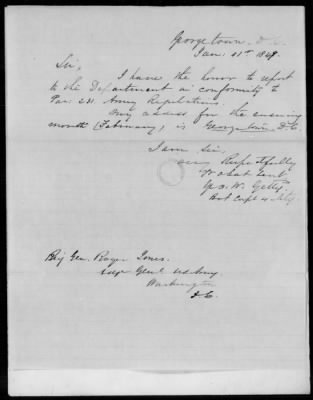 Georgetown, D.C.
Jan. 31st 1849.
Sir,
I have the honor to report
to the Department in conformity to
Par. 231 Army Regulations.
My address for the ensuing
month (February) is Georgetown D.C.
I am Sir,
very Respectfully
Yr obdt Servt
Geo. W. Getty
Bvt Capt. U.S. Arty.
Brig Gen. Roger Jones.
Genl. U.S. Army
Washington
D.C.